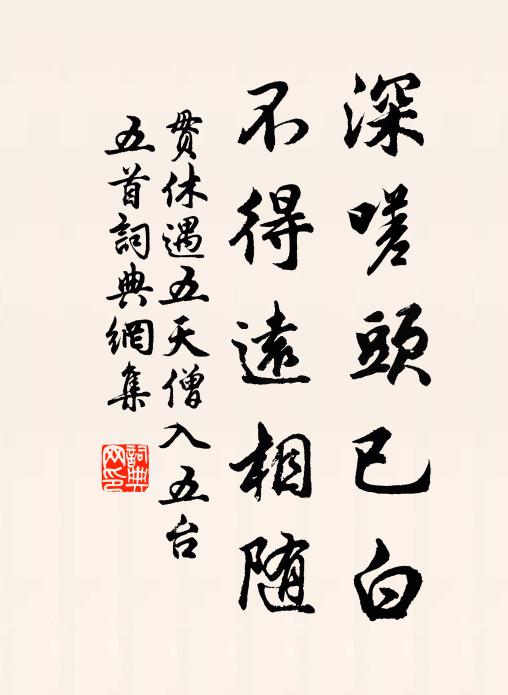 深嗟頭已白
不得遠相随
贯休遇五天僧入五台
五首詞典網集
詞典网印